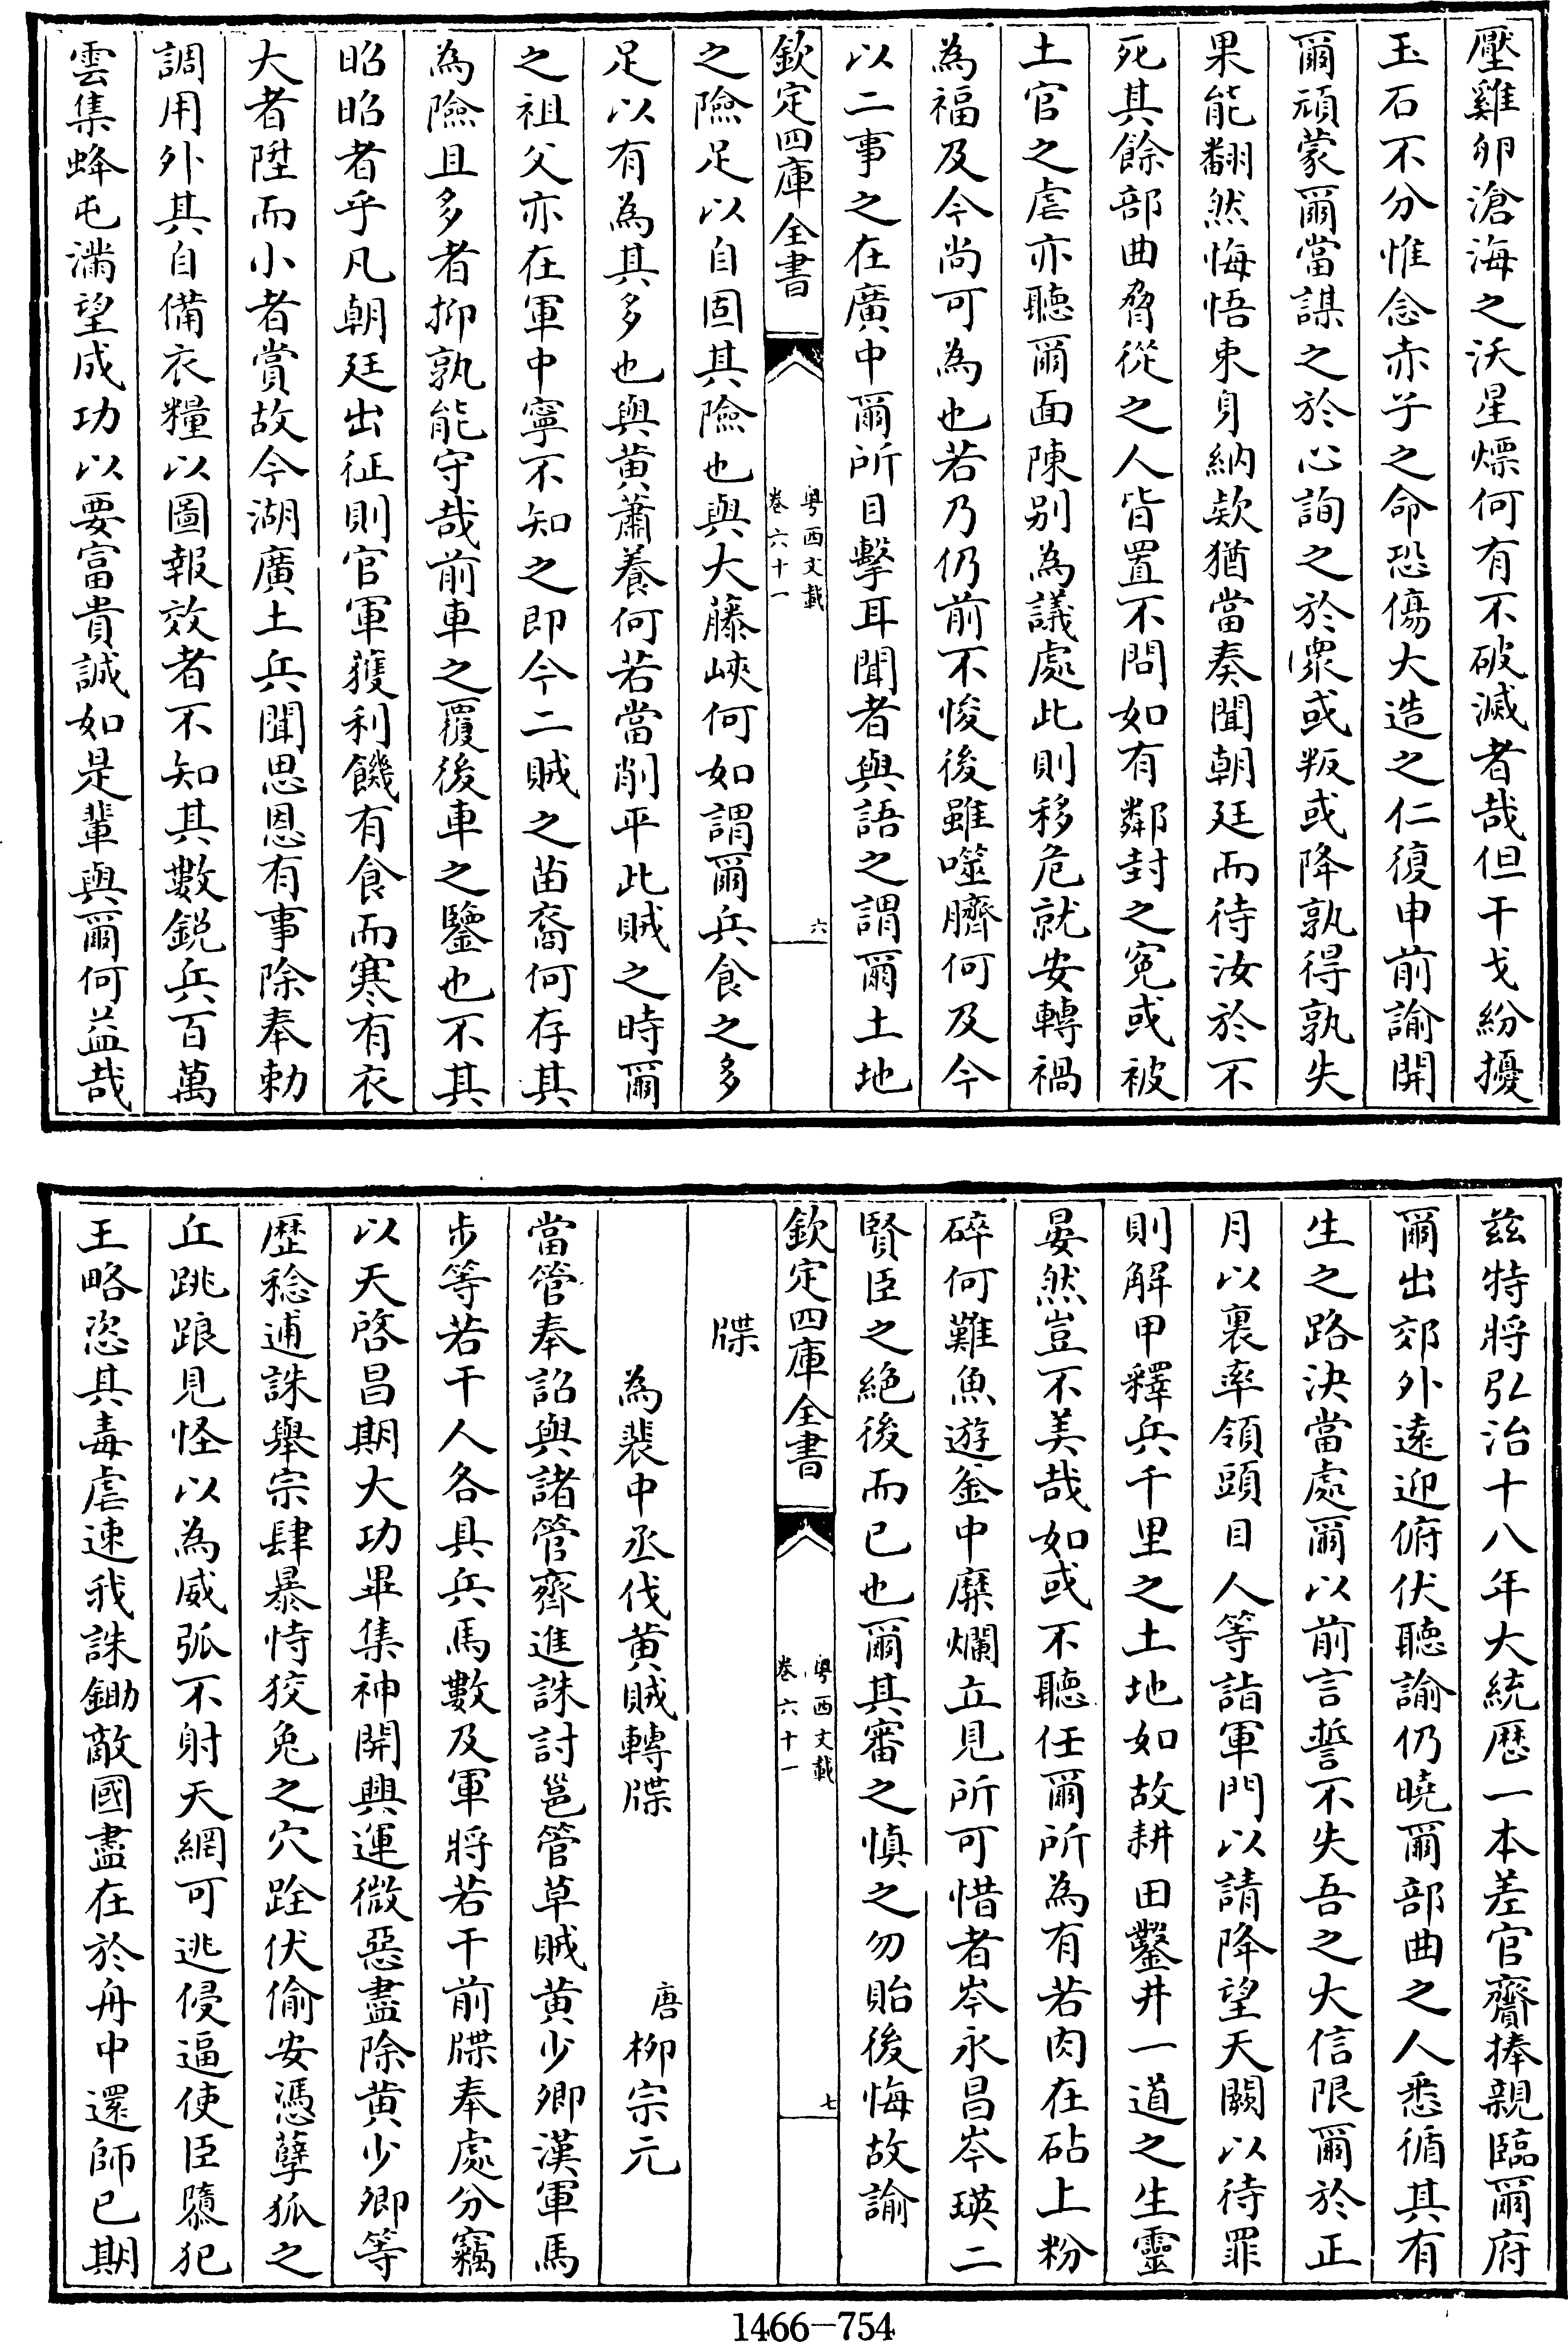 壓雞卵滄海之沃星熛何有不破滅者哉但干戈紛擾
玉石不分惟念赤子之命恐傷大造之仁復申前諭開
爾頑蒙爾當謀之於心詢之於眾或叛或降孰得孰失
果能翻然悔悟束身納欵猶當奏聞朝廷而待汝於不
死其餘部曲脅從之人皆置不問如有鄰封之寃或被
土官之虐亦聽爾面陳别為議處此則移危就安轉禍
為福及今尚可為也若乃仍前不悛後雖噬臍何及今
以二事之在廣中爾所目擊耳聞者與語之謂爾土地
欽定四庫全書
粤西文載
卷六十一
六
之險足以自固其險也與大藤峽何如謂爾兵食之多
足以有為其多也與黄蕭養何若當削平此賊之時爾
之祖父亦在軍中寧不知之即今二賊之苗裔何存其
為險且多者抑孰能守哉前車之覆後車之鑒也不其
昭昭者乎凡朝廷出征則官軍獲利饑有食而寒有衣
大者陞而小者賞故今湖廣土兵聞思恩有事除奉勅
調用外其自備衣糧以圖報效者不知其數鋭兵百萬
雲集蜂屯滿望成功以要富貴誠如是輩與爾何益哉
兹特將弘治十八年大統厯一本差官齎捧親臨爾府
爾出郊外遠迎俯伏聽諭仍曉爾部曲之人悉循其有
生之路決當處爾以前言誓不失吾之大信限爾於正
月以裏率領頭目人等詣軍門以請降望天闕以待罪
則解甲釋兵千里之土地如故耕田鑿井一道之生靈
晏然豈不美哉如或不聽任爾所為有若肉在砧上粉
碎何難魚遊釜中糜爛立見所可惜者岑永昌岑瑛二
賢臣之絶後而已也爾其審之慎之勿貽後悔故諭
欽定四庫全書
粤西文載
卷六十一
七
牒
為裴中丞伐黄賊轉牒
唐柳宗元
當管奉詔與諸管齊進誅討邕管草賊黄少卿漢軍馬
步等若干人各具兵馬數及軍將若干前牒奉處分竊
以天啓昌期大功畢集神開興運微惡盡除黄少卿等
歷稔逋誅舉宗肆暴恃狡兔之穴跧伏偷安憑孽狐之
丘跳踉見怪以為威弧不射天網可逃侵逼使臣隳犯
王略恣其毒虐速我誅鋤敵國盡在於舟中還師已期
1466—754